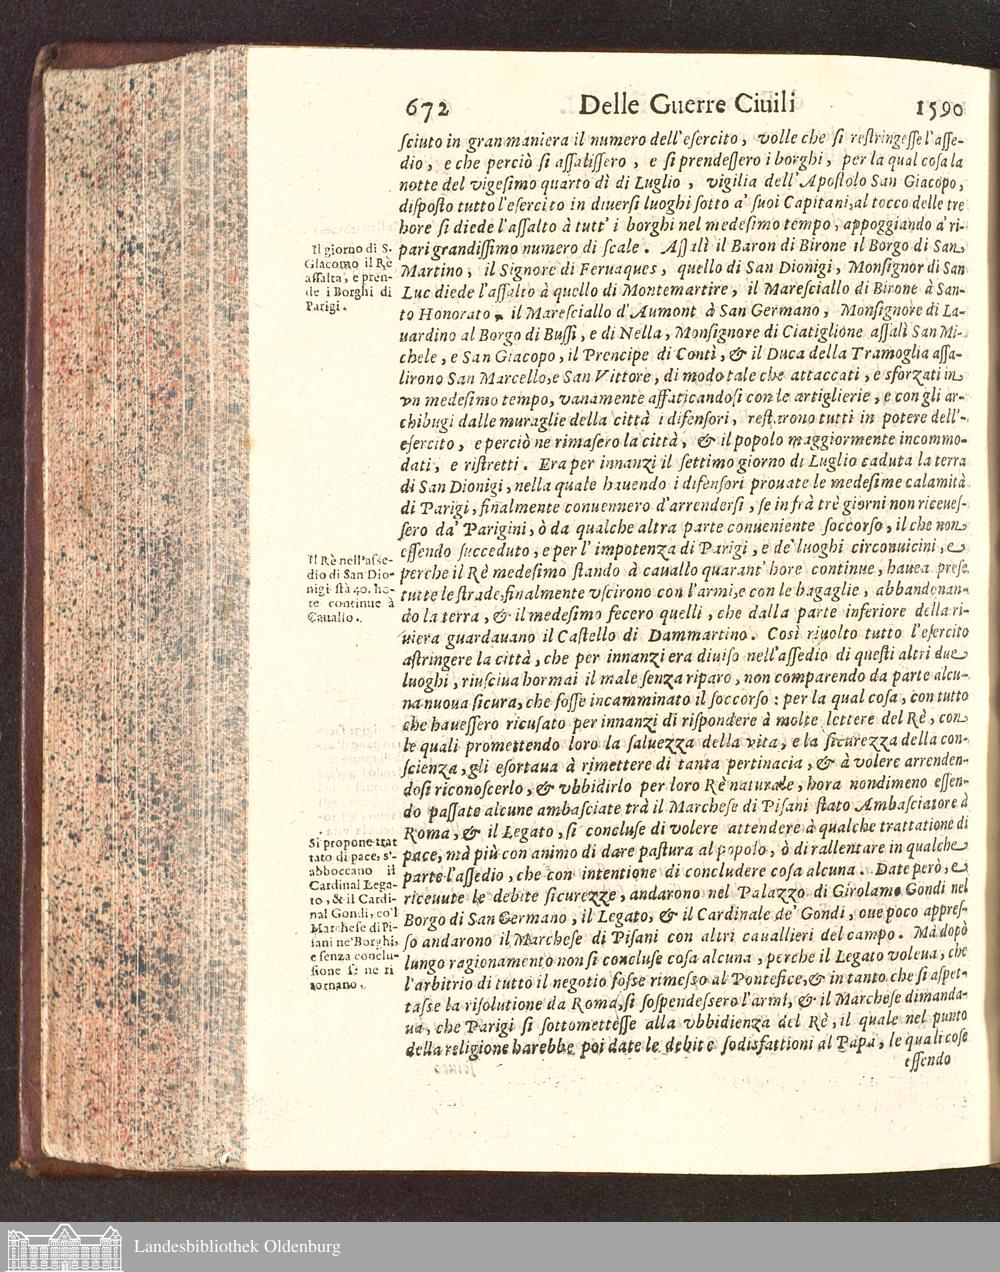 672 Delle Guerre Ciuili 1590
sciuto in gran maniera il numero dell'esercito, volle che si restringesse l'asse-
dio, e che perciò si assalissero, e si prendessero i borghi, per la qual cosa la
notte del vigesimo quarto dì di Luglio, vigilia dell'Apostolo San Giacopo,
disposto tutto l'esercito in diuersi luoghi sotto a' suoi Capitani, al tocco delle tre
hore si diede l'assalto à tutt' i borghi nel medesimo tempo, appoggiando a' ri-
pari grandissimo numero di scale. Assalì il Baron di Birone il Borgo di San
Martino, il Signore di Feruaques, quello di San Dionigi, Monsignor di San
Luc diede l'assalto à quello di Montemartire, il Maresciallo di Birone à San-
to Honorato, il Maresciallo d'Aumont à San Germano, Monsignore di La-
uardino al Borgo di Bussì, e di Nella, Monsignore di Ciatiglione assalì San Mi-
chele, e San Giacopo, il Prencipe di Contì, & il Duca della Tramoglia assa-
lirono San Marcello, e San Vittore, di modo tale che attaccati, e sforzati in
vn medesimo tempo, vanamente affaticandosi con le artiglierie, e con gli ar-
chibugi dalle muraglie della città i difensori, restarono tutti in potere dell'-
esercito, e perciò ne rimasero la città, & il popolo maggiormente incommo-
dati, e ristretti. Era per innanzi il settimo giorno di Luglio caduta la terra
di San Dionigi, nella quale hauendo i difensori prouate le medesime calamità
di Parigi, finalmente conuennero d'arrendersi, se infrà trè giorni non riceues-
sero da' Parigini, ò da qualche altra parte conueniente soccorso, il che non
essendo succeduto, e per l'impotenza di Parigi, e de' luoghi circonuicini, e
perche il Rè medesimo stando à cauallo quarant' hore continue, hauea prese
tutte le strade, finalmente vscirono con l'armi, e con le bagaglie, abbandonan-
do la terra, & il medesimo fecero quelli, che dalla parte inferiore della ri-
uiera guardauano il Castello di Dammartino. Così riuolto tutto l'esercito
astringere la città, che per innanzi era diuiso nell'assedio di questi altri due
luoghi, riusciua hormai il male senza riparo, non comparendo da parte alcu-
na nuoua sicura, che fosse incamminato il soccorso: per la qual cosa, con tutto
che hauessero ricusato per innanzi di rispondere à molte lettere del Rè, con
le quali promettendo loro la saluezza della vita, e la sicurezza della con-
scienza, gli esortaua à rimettere di tanta pertinacia, & à volere arrenden-
dosi riconoscerlo, & vbbidirlo per loro Rè naturale, hora nondimeno essen-
do passate alcune ambasciate trà il Marchese di Pisani stato Ambasciatore à
Roma, & il Legato, si concluse di volere attendere à qualche trattatione di
pace, mà più con animo di dare pastura al popolo, ò di rallentare in qualche
parte l'assedio, che con intentione di concludere cosa alcuna. Date però, e
riceuute le debite sicurezze, andarono nel Palazzo di Girolamo Gondi nel
Borgo di San Germano, il Legato, & il Cardinale de' Gondi, oue poco appres-
so andarono il Marchese di Pisani con altri cauallieri del campo. Mà dopò
lungo ragionamento non si concluse cosa alcuna, perche il Legato voleua, che
l'arbitrio di tutto il negotio fosse rimesso al Pontefice, & in tanto che si aspet-
tasse la risolutione da Roma, si sospendessero l'armi, & il Marchese dimanda-
ua, che Parigi si sottomettesse alla vbbidienza del Rè, il quale nel punto
della religione harebbe poi date le debite sodisfattioni al Papa, le quali cose
essendo
Il giorno di S.
Giacomo il Rè
assalta, e pren-
de i Borghi di
Parigi.
Il Rè nell'asse-
dio di San Dio-
nigi stà 40. ho-
re continue à
Cauallo.
Si propone trat
tato di pace, s'-
abboccano il
Cardinal Lega-
to, & il Cardi-
nal Gondi, co'l
Marchese di Pi-
sani ne' Borghi,
e senza conclu-
sione se ne ri
tornano.
Landesbibliothek Oldenburg